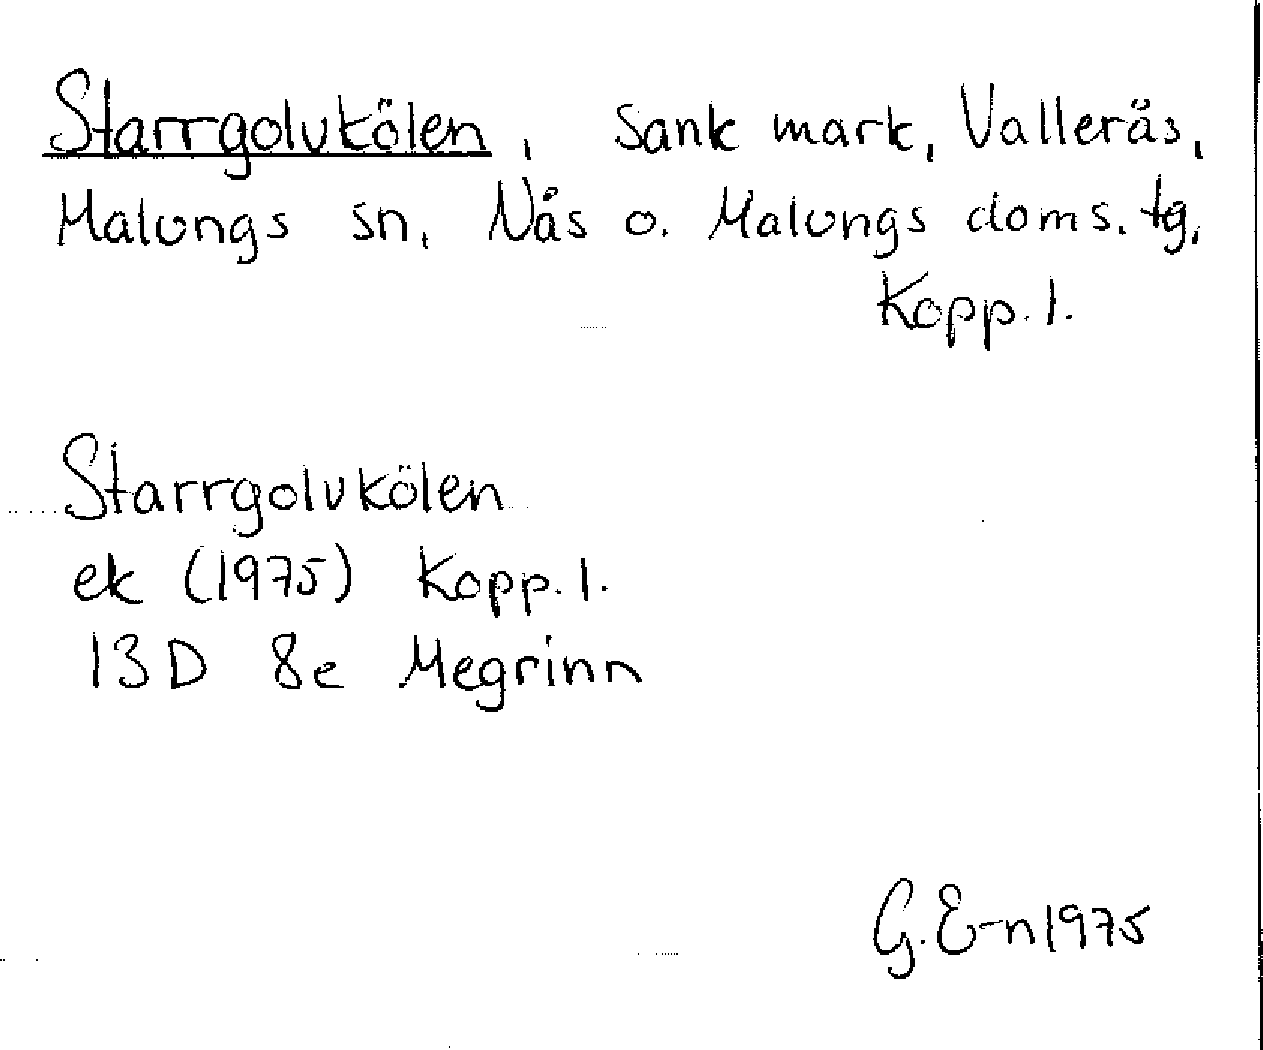 Starrgolvkölen, Sank mark, Valleräs,
Malungs sn, Nås o. Malungs doms. tg,
Kopp. l.
Starrgolvkölen
ek (1975) Kopp. l.
13D 8e Megrinn
G. E-n 1975